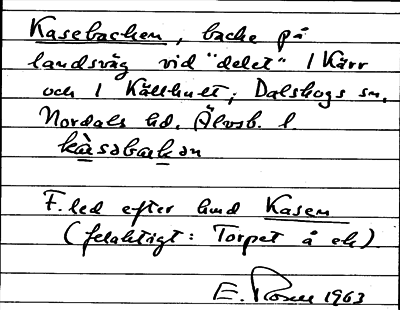 Kasebacken, backe på
landsväg vid "delet" 1 Kärr
och 1 Källhult; Dalskogs sn,
Nordals hd. Älvsb. l.
kàsabakan
F. led efter lund Kasen
(felaktigt: Torpet å ek).
E. Rosen 1963